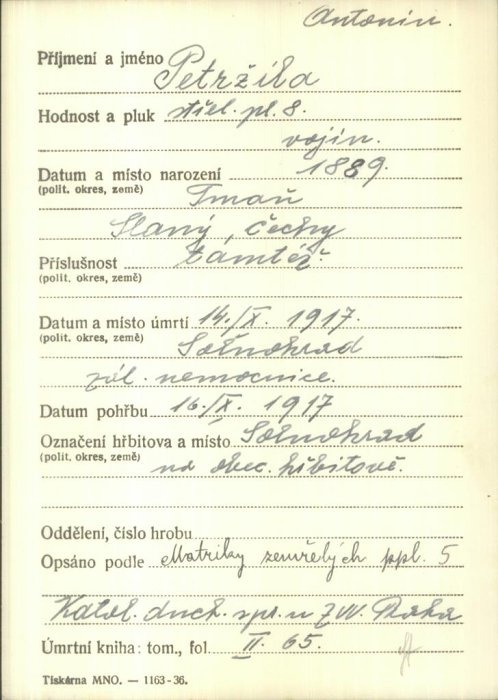 Antonín.
Příjmení a jméno Petržila
Hodnost a pluk střel. pl. 8.
vojín.
Datum a místo narození 1889.
(polit. okres, země) Tmaň
Slaný, Čechy
Příslušnost tamtéž.
(polit. okres, země)
Datum a místo úmrtí 14./X. 1917.
(polit. okres, země) Solnohrad
zál. nemocnice.
Datum pohřbu 16./X. 1917
Označení hřbitova a místo Solnohrad
(polit. okres, země) na obec. hřbitově.
Oddělení, číslo hrobu
Opsáno podle Matriky zemřelých ppl. 5
Katol. duch. spr. u ZVV. Praha
Úmrtní kniha: tom., fol. II. 65.
Tiskárna MNO. — 1163-36.